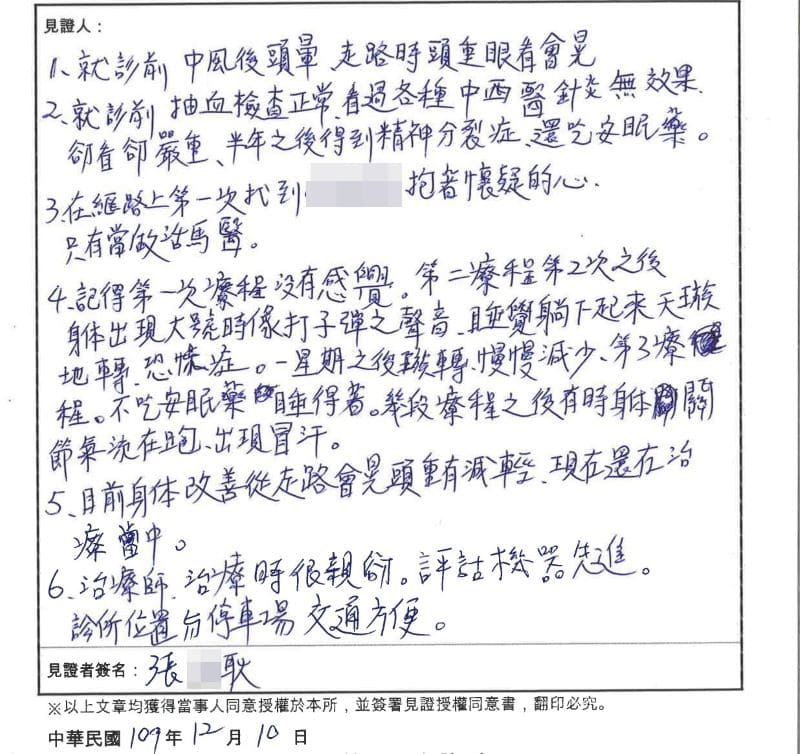 見證人：
1、就診前 中風後頭暈 走路時頭重眼看會晃
2、就診前 抽血檢查正常、看過各種中西醫針灸無效果、
卻看卻嚴重、半年之後得到精神分裂症、還吃安眠藥。
3、在網路上第一次找到 抱著懷疑的心、
只有當做活馬醫。
4、記得第一次療程沒有感覺。第二療程第2次之後
身体出現大號時像打子彈之聲音、睡覺躺下起來天璇
地轉、恐怖症。一星期之後璇轉、慢慢減少、第3療
程。不吃安眠藥 睡得著。幾段療程之後有時身体 關
節氣流在跑、出現冒汗。
5、目前身体改善從走路會晃頭重有減輕、現在還在治
療當中。
6、治療師、治療時很親衍。評估機器先進。
診所位置有停車場 交通方便。
見證者簽名：張 耿
※以上文章均獲得當事人同意授權於本所，並簽署見證授權同意書，翻印必究。
中華民國 109 年 12 月 10 日